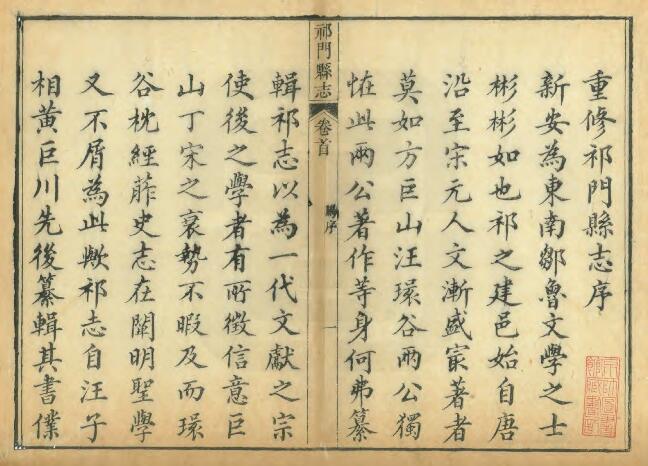 重修祁門縣志序
新安為東南鄒魯文學之士
彬彬如也祁之建邑始自唐
沿至宋元人文漸盛㝡著者
莫如方巨山汪環谷兩公獨
恠此兩公著作等身何弗纂
祁門縣志
卷首
序
一
輯祁志以為一代文獻之宗
使後之學者有所徵信意巨
山丁宋之衰勢不暇及而環
谷枕經葄史志在闡明聖學
又不屑為此歟祁志自汪子
相黃巨川先後纂輯其書僕